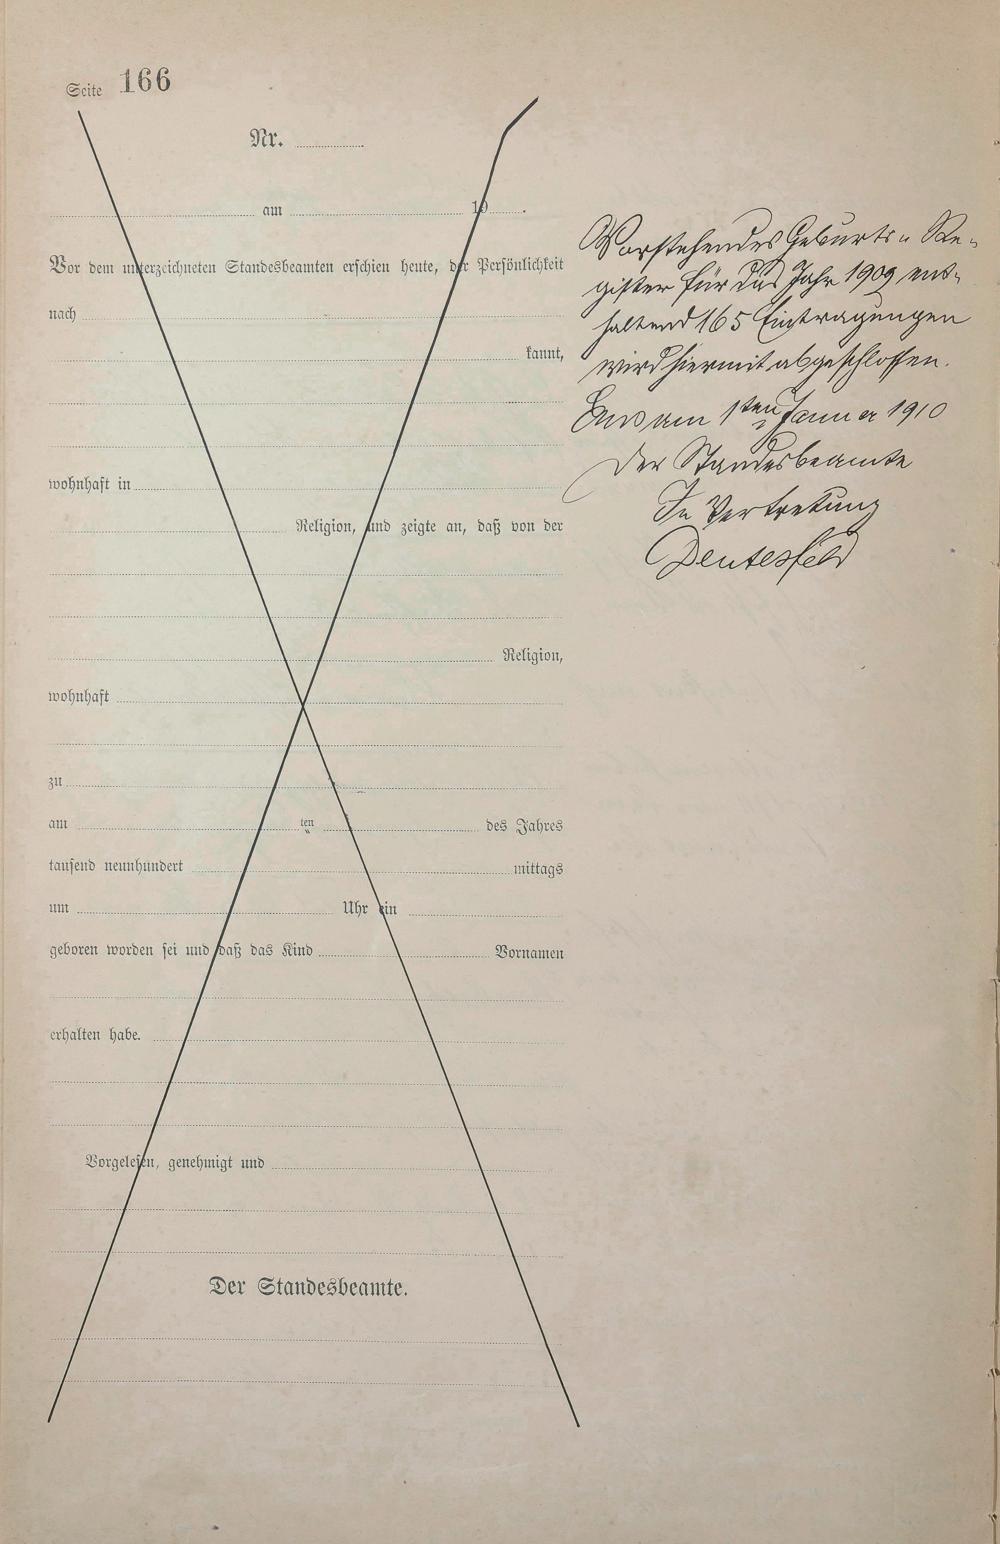 Seite 166
Nr.
am 19
Vor dem unterzeichneten Standesbeamten erschien heute, der Persönlichkeit
nach
kannt,
wohnhaft in
Religion, und zeigte an, daß von der
Religion,
wohnhaft
zu
am ten des Jahres
tausend neunhundert mittags
um Uhr ein
geboren worden sei und daß das Kind Vornamen
erhalten habe.
Vorgelesen, genehmigt und
Der Standesbeamte.
Vorstehendes Geburts- Re-
gister für das Jahr 1909 ent-
haltend 165 Eintragungen
wird hiermit abgeschlossen.
am 1ten Januar 1910
Der Standesbeamte
In Vertretung